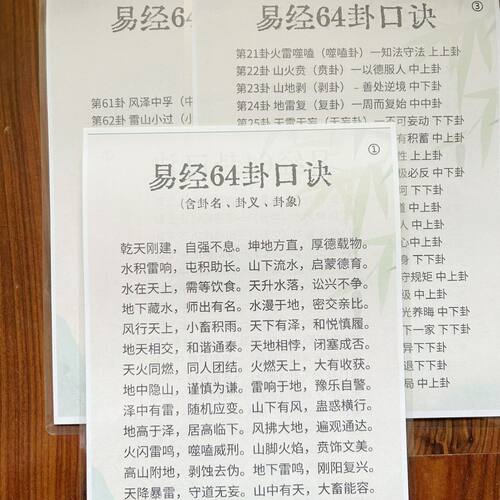 易经64
第61卦 风泽中孚（中
第62卦 雷山小过（小
易经64卦口诀
③
第21卦火雷噬嗑（噬嗑卦）—知法守法 上上卦
第22卦 山火贲（贲卦）—以德服人 中上卦
第23卦 山地剥（剥卦）－善处逆境 中下卦
第24卦 地雷复（复卦）—周而复始 中中卦
第25卦 天雷无妄（无妄卦）—不可妄动 下下卦
有积蓄 中上卦
性 上上卦
极必反 中下卦
河 下下卦
道 中上卦
中上卦
心中上卦
身 下下卦
守规矩 中上卦
级 中上卦
光养晦 中下卦
下一家 下下卦
异下下卦
退下下卦
局 中上卦
①
易经64卦口诀
（含卦名、卦义、卦象）
乾天刚建，自强不息。坤地方直，厚德载物。
水积雷响，屯积助长。山下流水，启蒙德育。
水在天上，需等饮食。天升水落，讼兴不争。
地下藏水，师出有名。水漫于地，密交亲比。
风行天上，小畜积雨。天下有泽，和悦慎履。
地天相交，和谐通泰。天地相悖，闭塞成否。
天火同燃，同人团结。火燃天上，大有收获。
地中隐山，谨慎为谦。雷响于地，豫乐自警。
泽中有雷，随机应变。山下有风，蛊惑横行。
地高于泽，居高临下。风拂大地，遍观通达。
火闪雷鸣，噬嗑威刑。山脚火焰，贲饰文美。
高山附地，剥蚀去伪。地下雷鸣，刚阳复兴。
天降暴雷，守道无妄。山中有天，大畜能容。